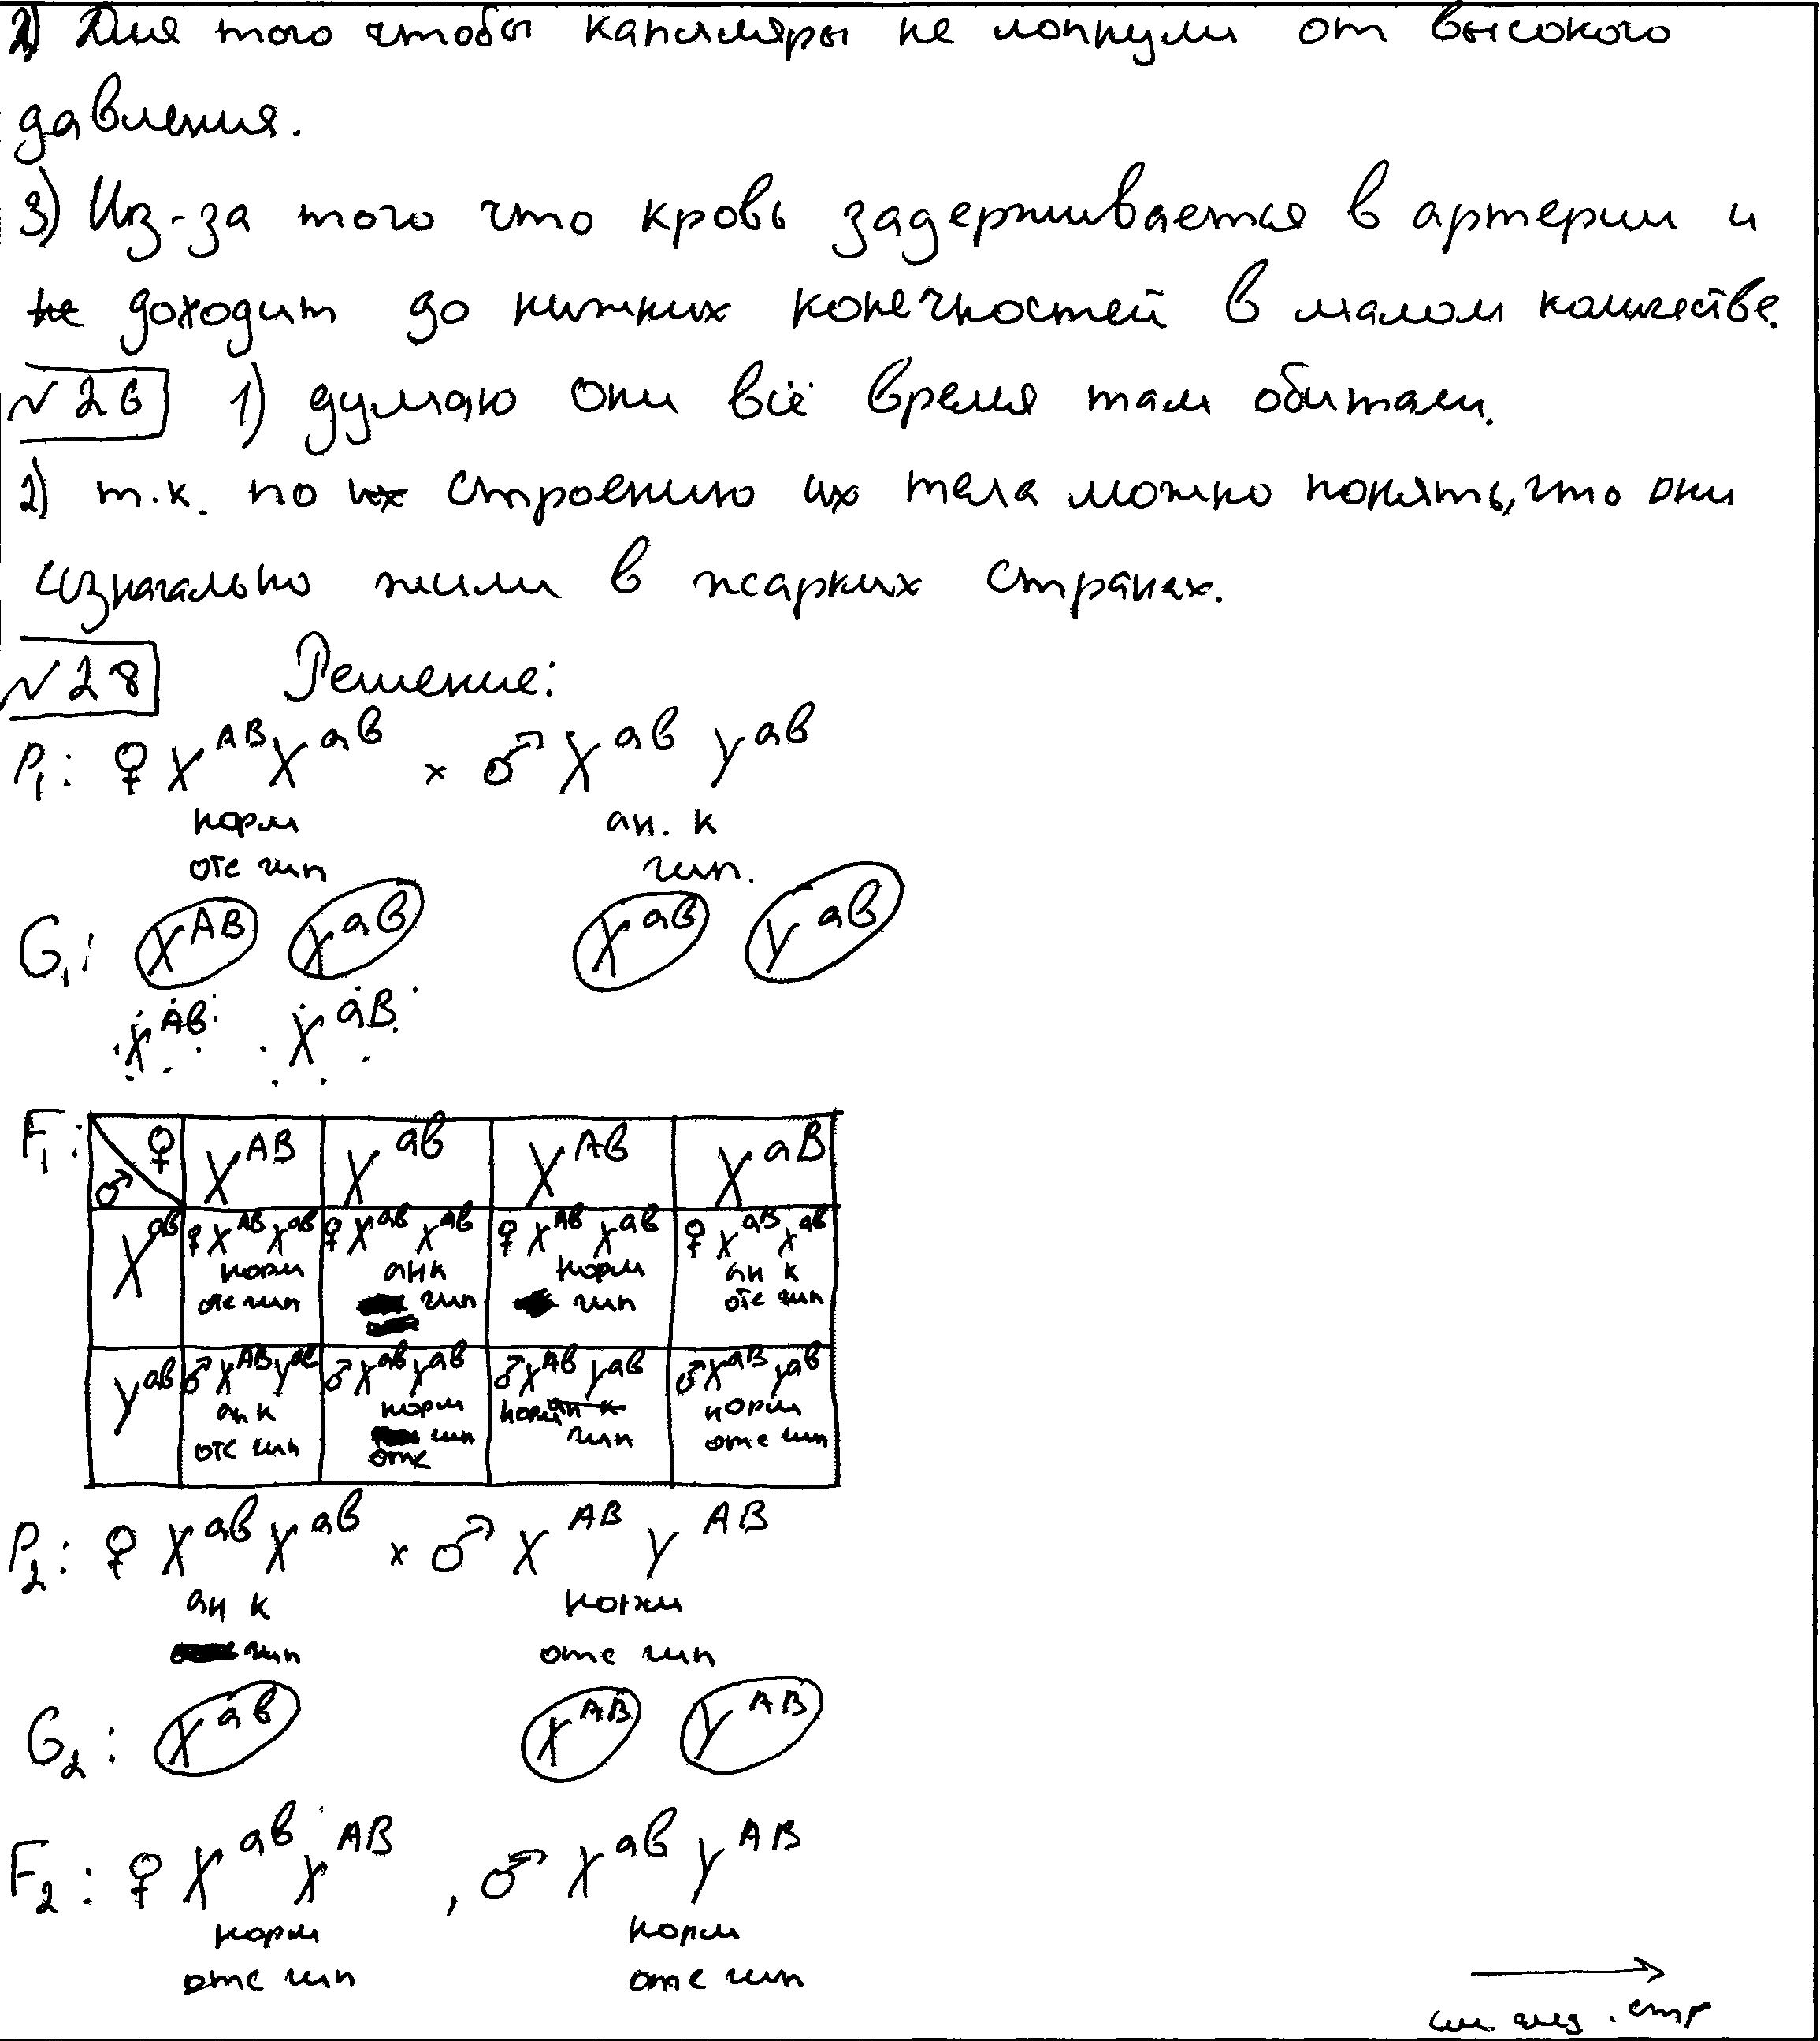 2) Для того чтобы капилляры не лопнули от высокого
давления.
3) Из-за того что кровь задерживается в артерии и
не доходит до нижних конечностей в малом количестве.
№26 1) думаю они всё время там обитали.
2) т.к. по их строению их тела можно понять, что они
изначально жили в жарких странах.
№28 Решение:
P₁: ♀ X^AB X^ab × ♂ X^ab Y^ab
норм ан. к
отс гип гип.
G₁: X^AB X^ab X^ab Y^ab
X^Ab X^aB
F₁: ♀ ♂ X^AB X^ab X^Ab X^aB
X^ab ♀ X^AB X^ab ♀ X^ab X^ab ♀ X^Ab X^ab ♀ X^aB X^ab
норм ан к норм ан к
отс гип гип гип отс гип
Y^ab ♂ X^AB Y^ab ♂ X^ab Y^ab ♂ X^Ab Y^ab ♂ X^aB Y^ab
ан к норм норм ан к норм
отс гип гип гип отс гип
отс
P₂: ♀ X^ab X^ab × ♂ X^AB Y^AB
ан к норм
гип отс гип
G₂: X^ab X^AB Y^AB
F₂: ♀ X^ab X^AB , ♂ X^ab Y^AB
норм норм
отс гип отс гип
см след. стр